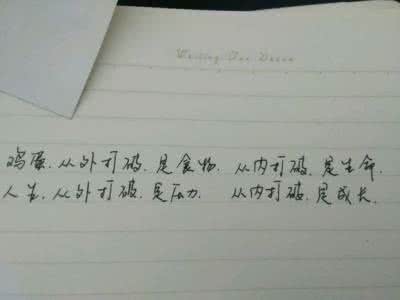 鸡蛋.从外打破.是食物.从内打破.是生命.
人生.从外打破.是压力 从内打破.是成长.